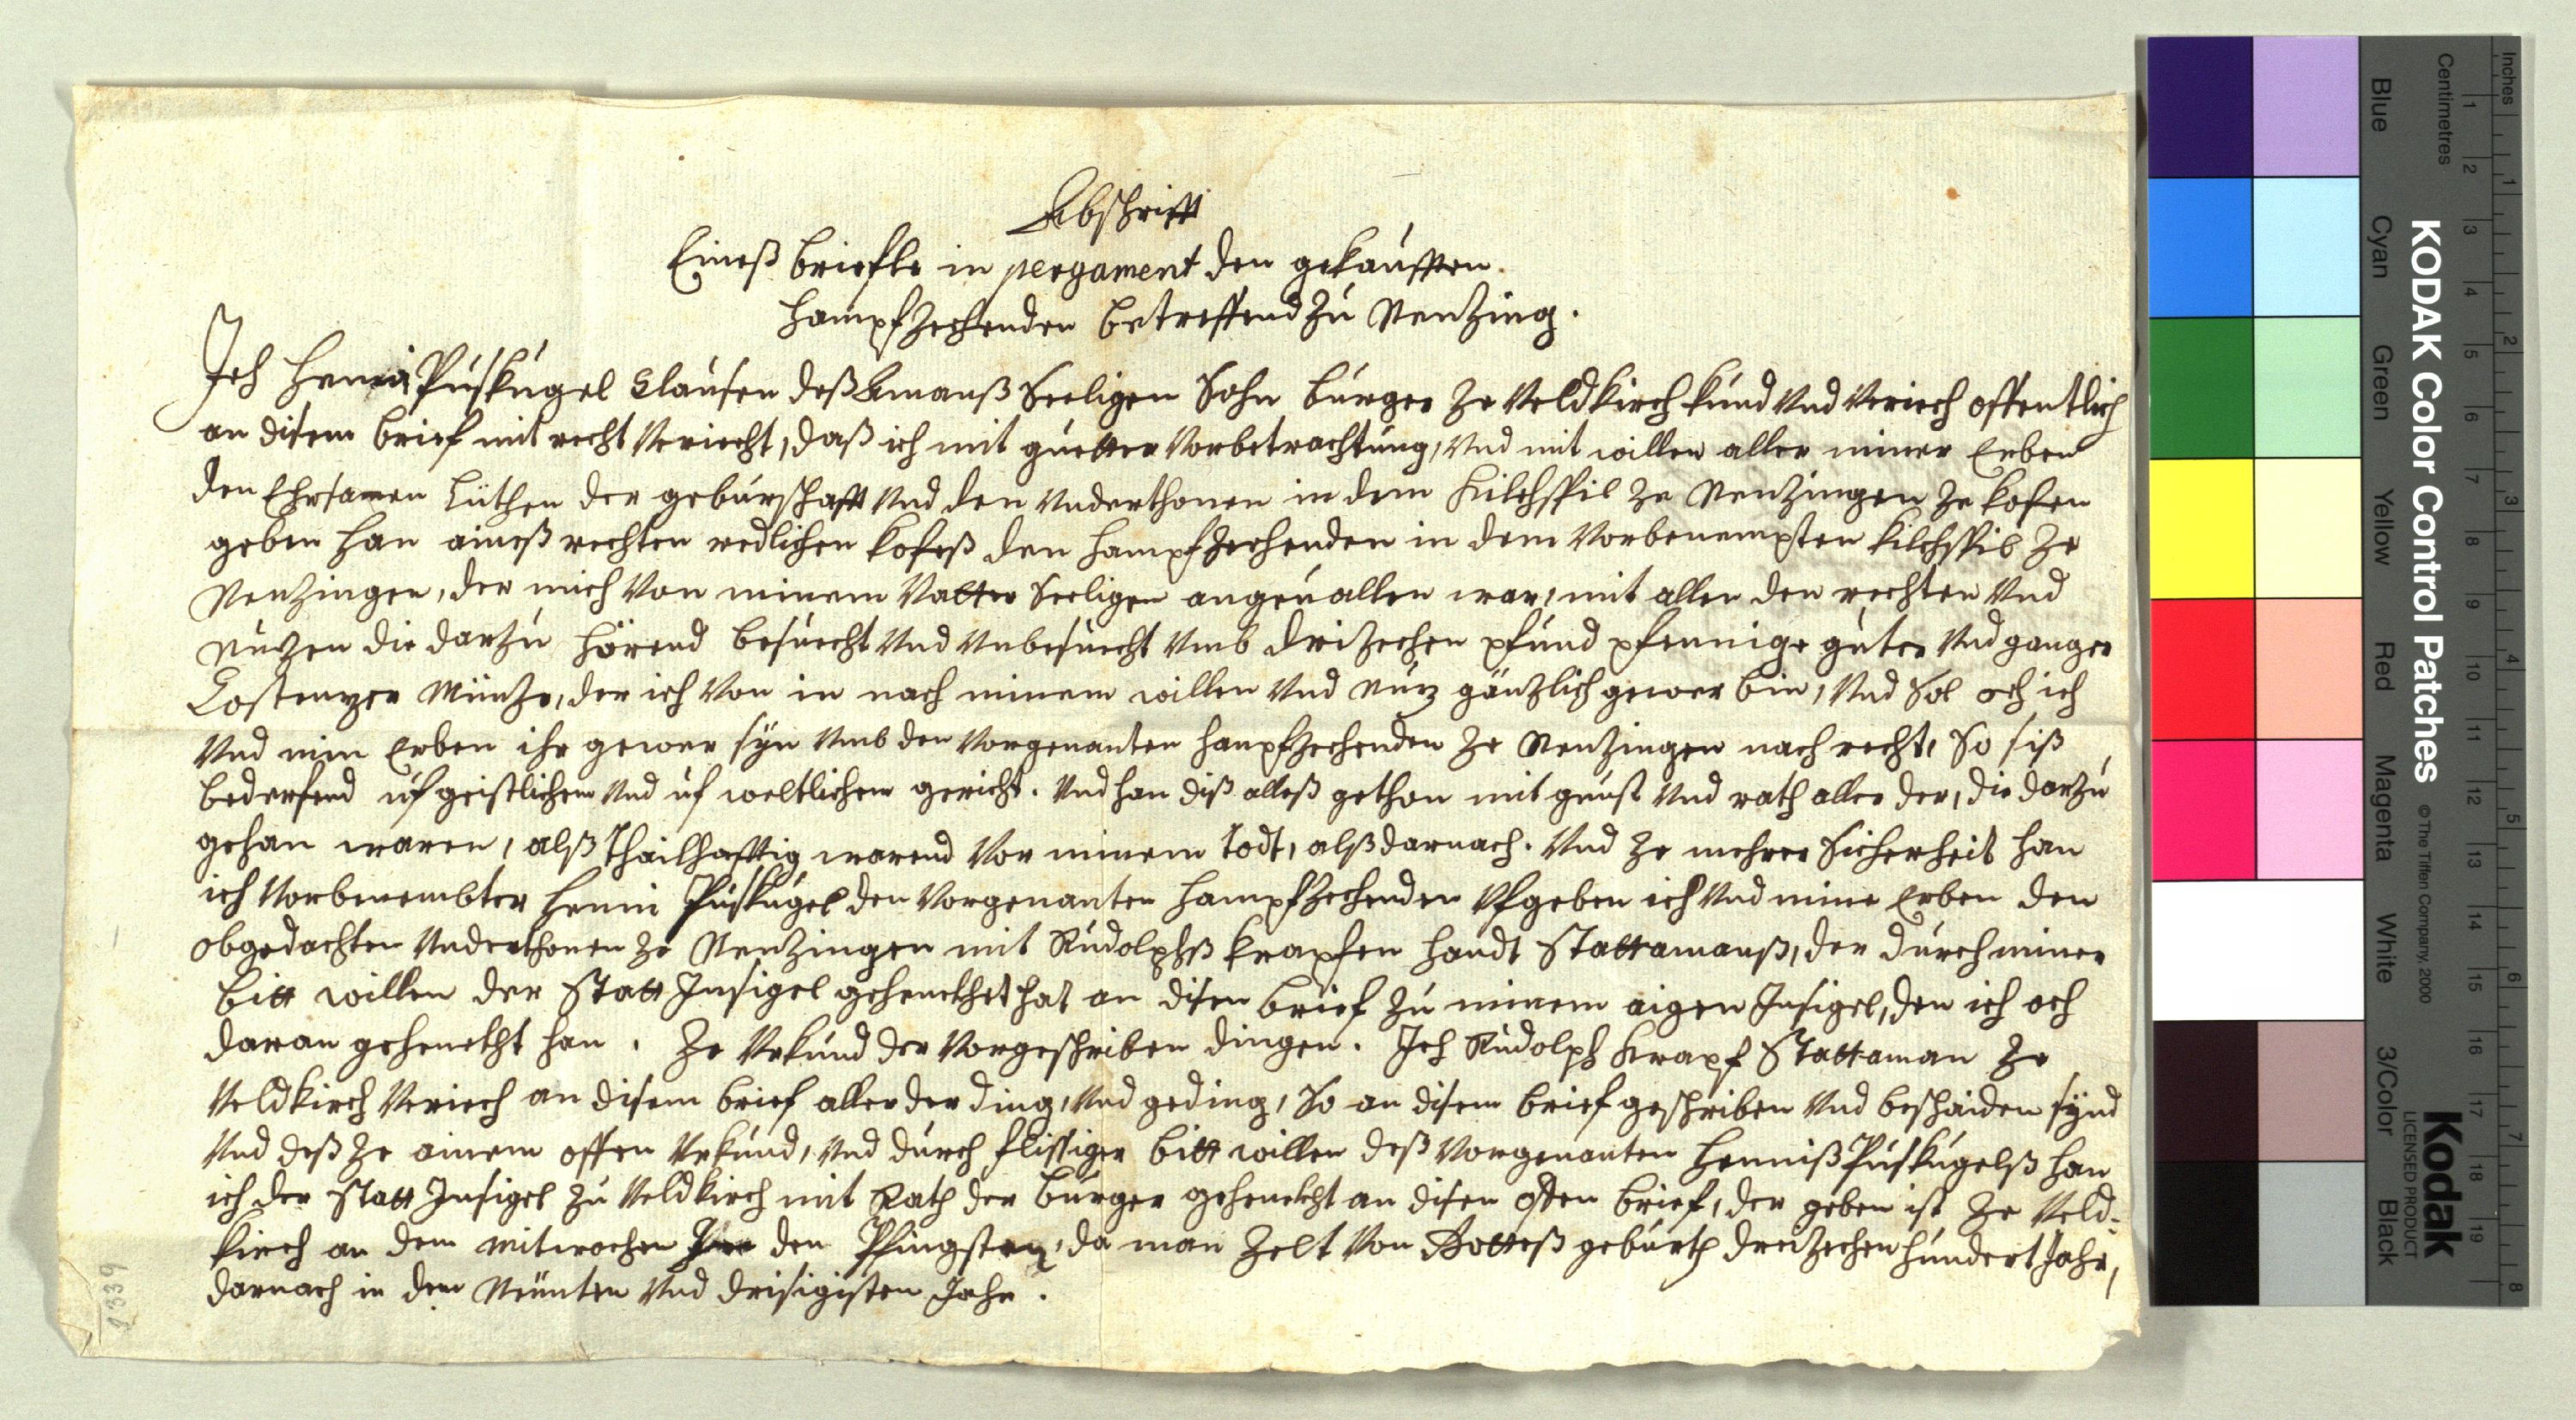 Abschrifft
Eineß briefle in pergament den gekaufften.
Hampfzechenden betreffend zu Nentzing.
Ich Henni Puskugel Clausen deß Amanß Seeligen Sohn burger ze Veldkirch kund Vnd Veriech offentlich
an disem brief mit recht Veriecht, daß ich mit guetter Vorbetrachtung, Vnd mit willen aller miner Erben
den Ehrsamen Lüthen der geburschafft Vnd den Vnderthonen in dem Kilchspil ze Nentzingen ze kofen
geben han aineß rechten redlichen kofeß den Hampfzechenden in dem Vorbenempten kilchspil ze
Nentzingen, der mich Von minem Vatter Seeligen angeuallen war, mit allen den rechten Vnd
Nutzen die darzu hörend besuecht Vnd Vnbesuecht Vmb drizechen pfund pfennige guter Vnd ganger
Costentzer Müntze, der ich Von in nach minem willen Vnd Nutz gäntzlich gewer bin, Vnd Sol och ich
Vnd min Erben ihr gewer syn Vmb den Vorgenanten hanpfzechenden ze Nentzingen nach recht, So siß
bederfend uf geistlichem Vnd uf weltlichem gericht. Vnd han diß alleß gethon mit gunst Vnd rath aller der, die darzu
gehan waren, alß thailhafftig warend Vor minem todt, alß darnach. Vnd ze mehrer Sicherheit han
ich Vorbenembter Henni Puskugel den Vorgenanten Hampfzechenden Vfgeben ich Vnd mine Erben den
obgedachten Vnderthonen ze Nentzingen mit Rudolphß Krapfen handt Stattamanß, der durch miner
bitt willen der Statt Insigel gehenckhet hat an disen brief zu minem aigen Insigel, den ich och
daran gehenckht han. Ze Vrkund der Vorgeschriben dingen. Ich Rudolph Krapf Stattaman ze
Veldkirch Veriech an disem brief aller der ding, Vnd geding, So an disem brief geschriben Vnd beschaiden synd
Vnd deß ze ainem offen Vrkund, Vnd durch flissiger bitt willen deß Vorgenanten Henniß Puskugelß han
ich der Statt Insigel zu Veldkirch mit Rath der burger gehenckht an disen offen brief, der geben ist ze Veld-
kirch an dem mitwochen Vor den Pfingsten, da man zelt Von Gotteß geburth dreizechenhundert Jahr,
darnach in dem Neunten Vnd drisigisten Jahr.
1339
KODAK Color Control Patches
© The Tiffen Company, 2000
Kodak
LICENSED PRODUCT
Inches
1 2 3 4 5 6 7 8
Centimetres
1 2 3 4 5 6 7 8 9 10 11 12 13 14 15 16 17 18 19
Blue Cyan Green Yellow Red Magenta White 3/Color Black